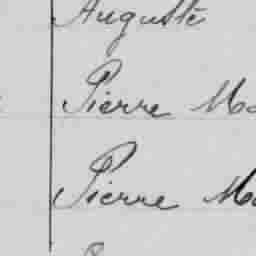 Auguste
Pierre Ma
Pierre Ma